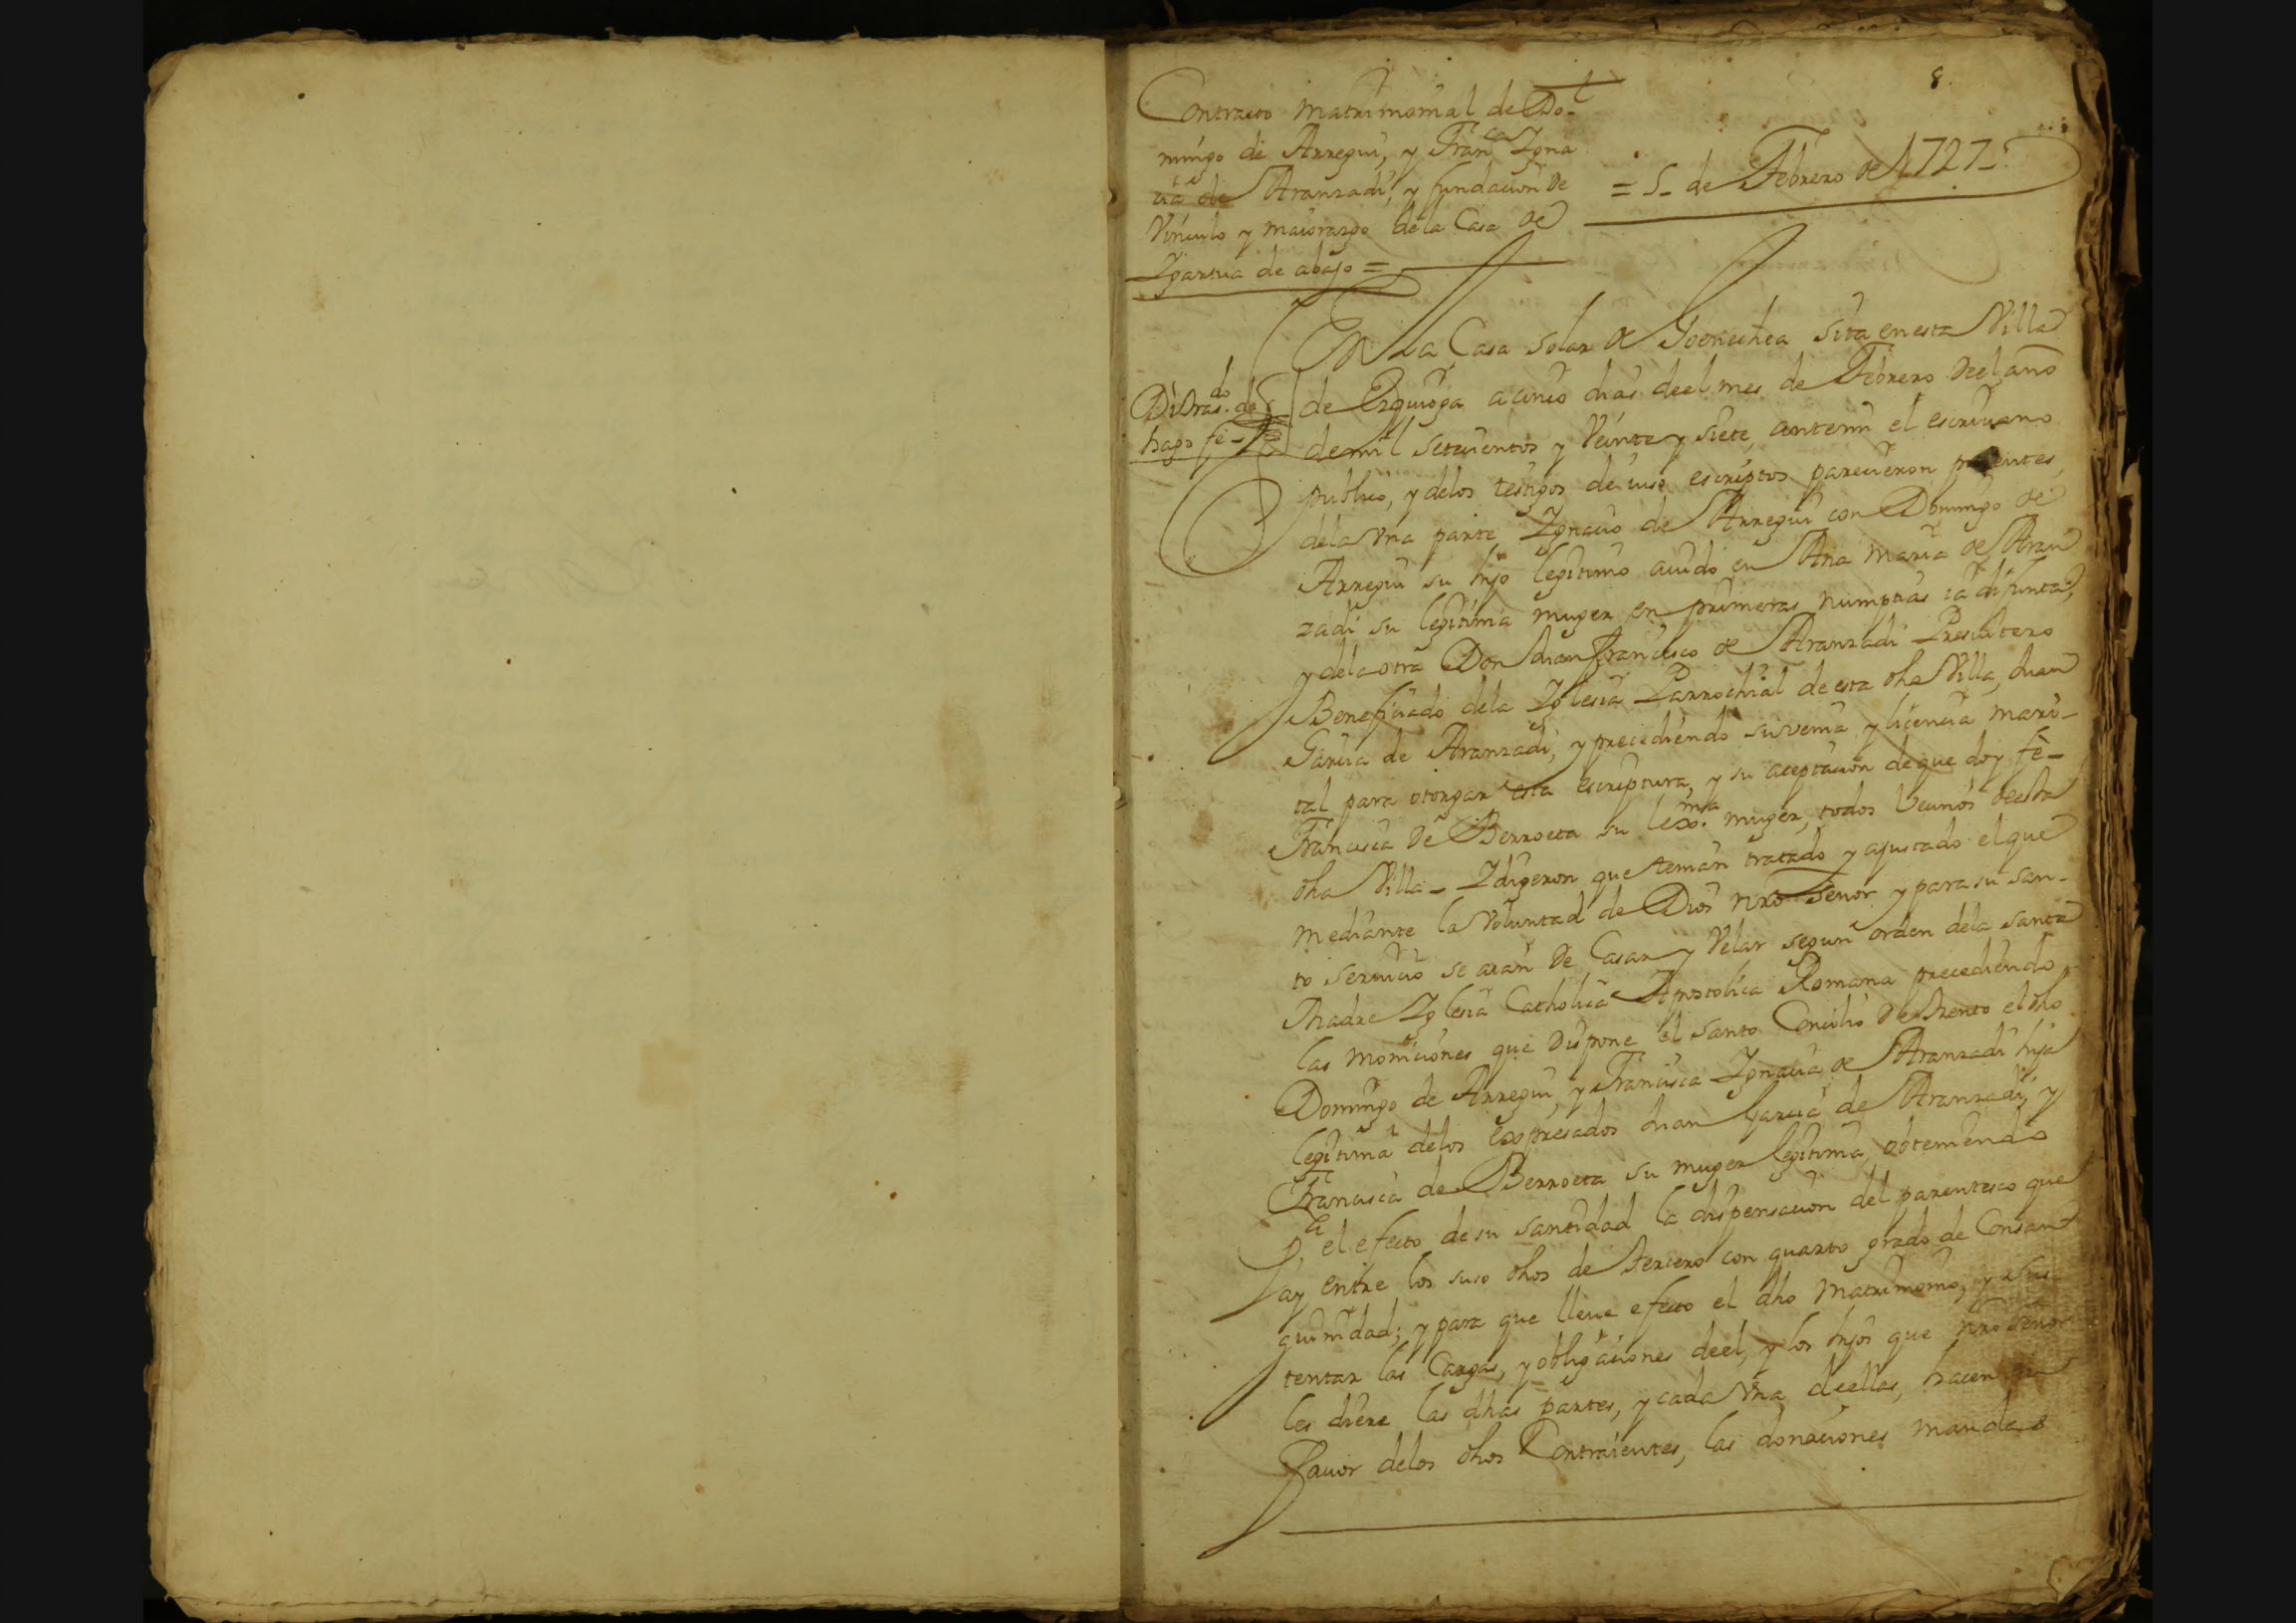 8
Contrato Matrimonial de Do-
mingo de Arregui, y Fran^ca Igna
cia de Aranzadi, y fundacion de
Vinculo y maiorazgo dela Casa de
Igarzua de abajo =
= 5 de Febrero de 1727
En La Casa solar de Goenechea sita en esta Villa
de Ezquioga a cinco dias de el mes de Febrero de el año
de mil setecientos y Veinte y siete, antemi el escriuano
publico, y delos testigos de iuso escriptos parecieron presentes,
dela Vna parte Ignacio de Arregui con Domingo de
Arregui su hijo legitimo auido en Ana Maria de Aran
zadi su legitima muger en primeras numptias ia difunta,
y dela otra Don Juan Francisco de Aranzadi Presuitero
Beneficiado dela Iglesia Parrochial de esta dha Villa, Juan
Garcia de Aranzadi, y precediendo su venia y licencia mari-
tal para otorgar esta escriptura, y su aceptacion de que doy fe-
Francisca de Berroeta su lex^ma muger, todos Vecinos de esta
dha Villa - I digeron que tenian tratado y ajustado el que
mediante la Voluntad de Dios nro Señor y para su san-
to seruicio se aian de Casar y Velar segun orden dela santa
Madre Iglesia Catholica Apostolica Romana precediendo
las moniciones que dispone el santo Concilio de Trento el dho
Domingo de Arregui, y Francisca Ignacia de Aranzadi hija
legitima delos expresados Juan Garcia de Aranzadi, y
Francisca de Berroeta su muger legitima, obteniendo
p^a el efecto de su santidad la dispensacion del parentesco que
ay entre los suso dhos de tercero con quarto grado de Consan
guinidad; y para que lleue efecto el dho Matrimonio, y sus
tentar las Cargas, y obligaciones de el, y los hijos que nro Señor
les diere las dhas partes, y cada Vna de ellas, hacen en
fauor delos dhos Contraientes, las donaciones mandas
Di tras^do de
hago fe -